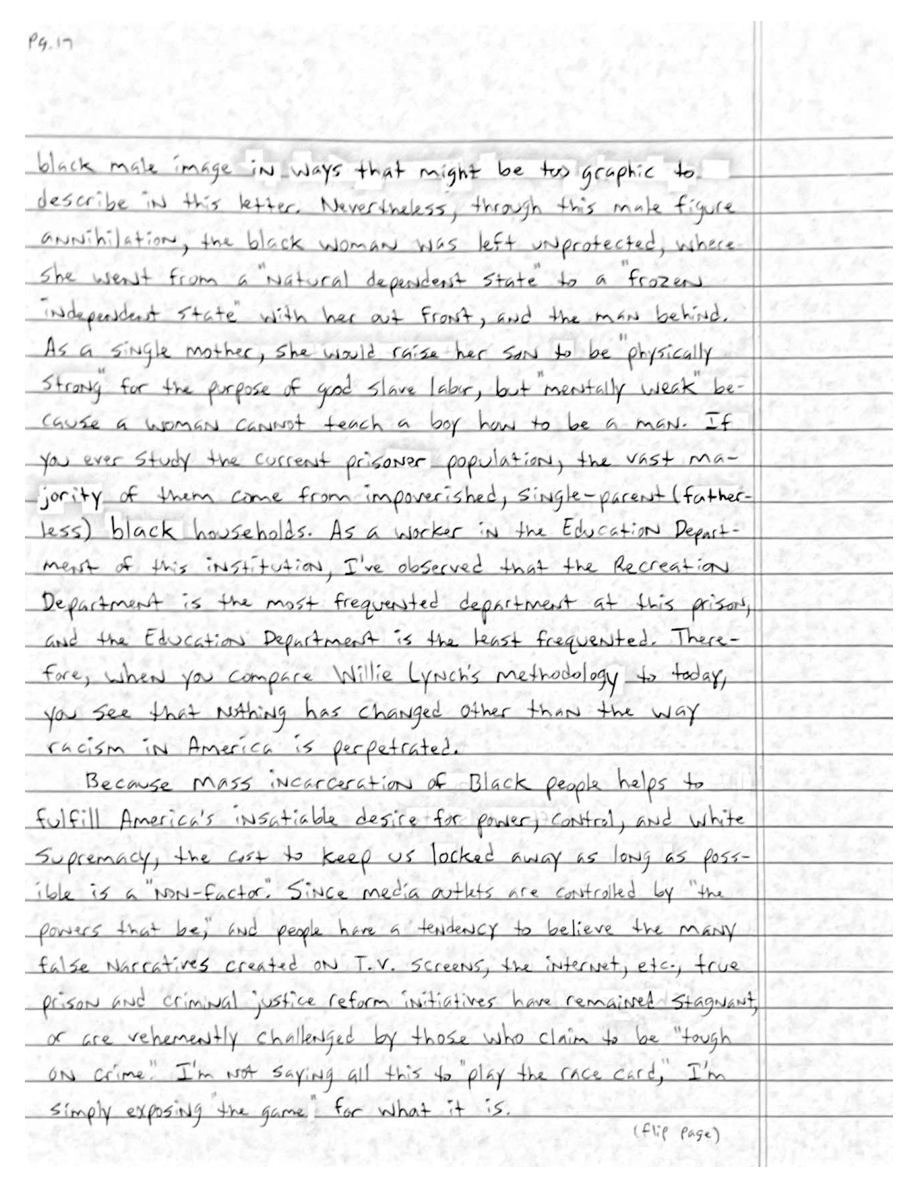 Pg. 17
black male image in ways that might be too graphic to
describe in this letter. Nevertheless, through this male figure
annihilation, the black woman was left unprotected, where
she went from a "natural dependent state" to a "frozen
independent state" with her out front, and the man behind.
As a single mother, she would raise her son to be "physically
strong" for the purpose of good slave labor, but "mentally weak" be-
cause a woman cannot teach a boy how to be a man. If
you ever study the current prisoner population, the vast ma-
jority of them come from impoverished, single-parent (father-
less) black households. As a worker in the Education Depart-
ment of this institution, I've observed that the Recreation
Department is the most frequented department at this prison,
and the Education Department is the least frequented. There-
fore, when you compare Willie Lynch's methodology to today,
you see that nothing has changed other than the way
racism in America is perpetrated.
Because mass incarceration of Black people helps to
fulfill America's insatiable desire for power, control, and white
supremacy, the cost to keep us locked away as long as poss-
ible is a "non-factor". Since media outlets are controlled by "the
powers that be," and people have a tendency to believe the many
false narratives created on T.V. screens, the internet, etc., true
prison and criminal justice reform initiatives have remained stagnant,
or are vehemently challenged by those who claim to be "tough
on crime". I'm not saying all this to "play the race card," I'm
simply exposing "the game" for what it is.
(flip page)